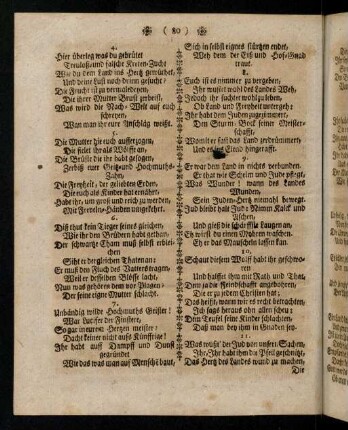 ( 80 )
4.
Hier überleg was du gebrütet
Treuloß und falsche Kröten-Zucht
Was du dem Land ins Hertz gewütet,
Und deine Lust noch drinn gesucht?
Die Frucht ist zu vermaledeyen,
Die ihrer Mutter Brust zerbeist,
Was wird die Nach-Welt auf euch
schreyen,
Wann man ihr eure Anschläg weißt.
5.
Die Mutter die euch aufferzogen,
Die
Die Brüste die ihr habt gesogen,
Zerbiß eure Geitz und Hochmuths-
Zahn,
Die Freyheit, der geliebten Erden,
Die euch als Kinder hat ernährt
Habt ihr, um groß und reich zu werden,
Mit Frevelen-Händen umgekehrt.
6.
Diß thut kein Tieger seines gleichen,
Wie ihr den Brüdern habt gethan,
Der schwartze Cham muß selbst erbleichen
Sieht er dergleichen Thaten an:
Er muß den Fluch des Vatters tragen,
Weil er desselben Blösse lacht,
Nun was gehören dem vor Plagen
Der seine eigne Mutter schlacht.
7.
Unbändig wilde Hochmuths Geister,
War Lucifer der Finstere,
So gar in euren Hertzen meister:
Dacht keiner nicht auf Künfftige?
Ihr habt auff Dampff und Dunst
gegründet
Wie das was man auf Mensche baut,
Sich in selbst eignes stürtzen endet,
Weh dem der
traut.
8.
Euch ist es nimmer zu vergeben,
Ihr wußtet wohl des Landes Weh,
Jedoch ihr
Ob Land und Freyheit untergeh:
Den Sturm-Bock seiner Meister-
schafft,
Womit er fast das Land zertrümmert,
9.
Er war dem Land in nichts verbunden.
Er that wie Schelm und Jude pflegt,
Was Wunder! wann des Landes
Wunden,
Sein Juden-Hertz niemahl bewegt.
Jud bleibt halt Jude Nimm Kalck und
Aschen,
Und gieß die
Er wirst du einen Mohren waschen,
Eh er das Mauscheln lassen kan.
10.
Schaut diesem Wolf habt ihr geschworen
Und halffet ihm mit Rath und That,
Dem ja die Feindschafft angebohren,
Die er zu jedem Christen hat;
Das heißt, wann mirs recht betrachten,
Ich sags heraus ohn allen scheu:
Dem Teufel seine Kinder schlachten,
Daß man bey ihm in Gnaden sey.
11.
Was wußt der Jud von unsern Sachen,
Ihr, Ihr habt ihm die Pfeil geschnitzt,
Das Hertz des Landes wund zu machen,
Die